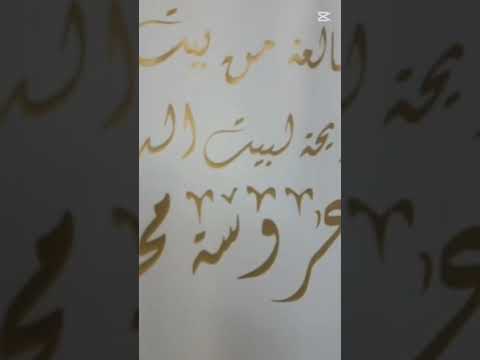 طالعة من بيت
رايحة لبيت الد
عروسة مح